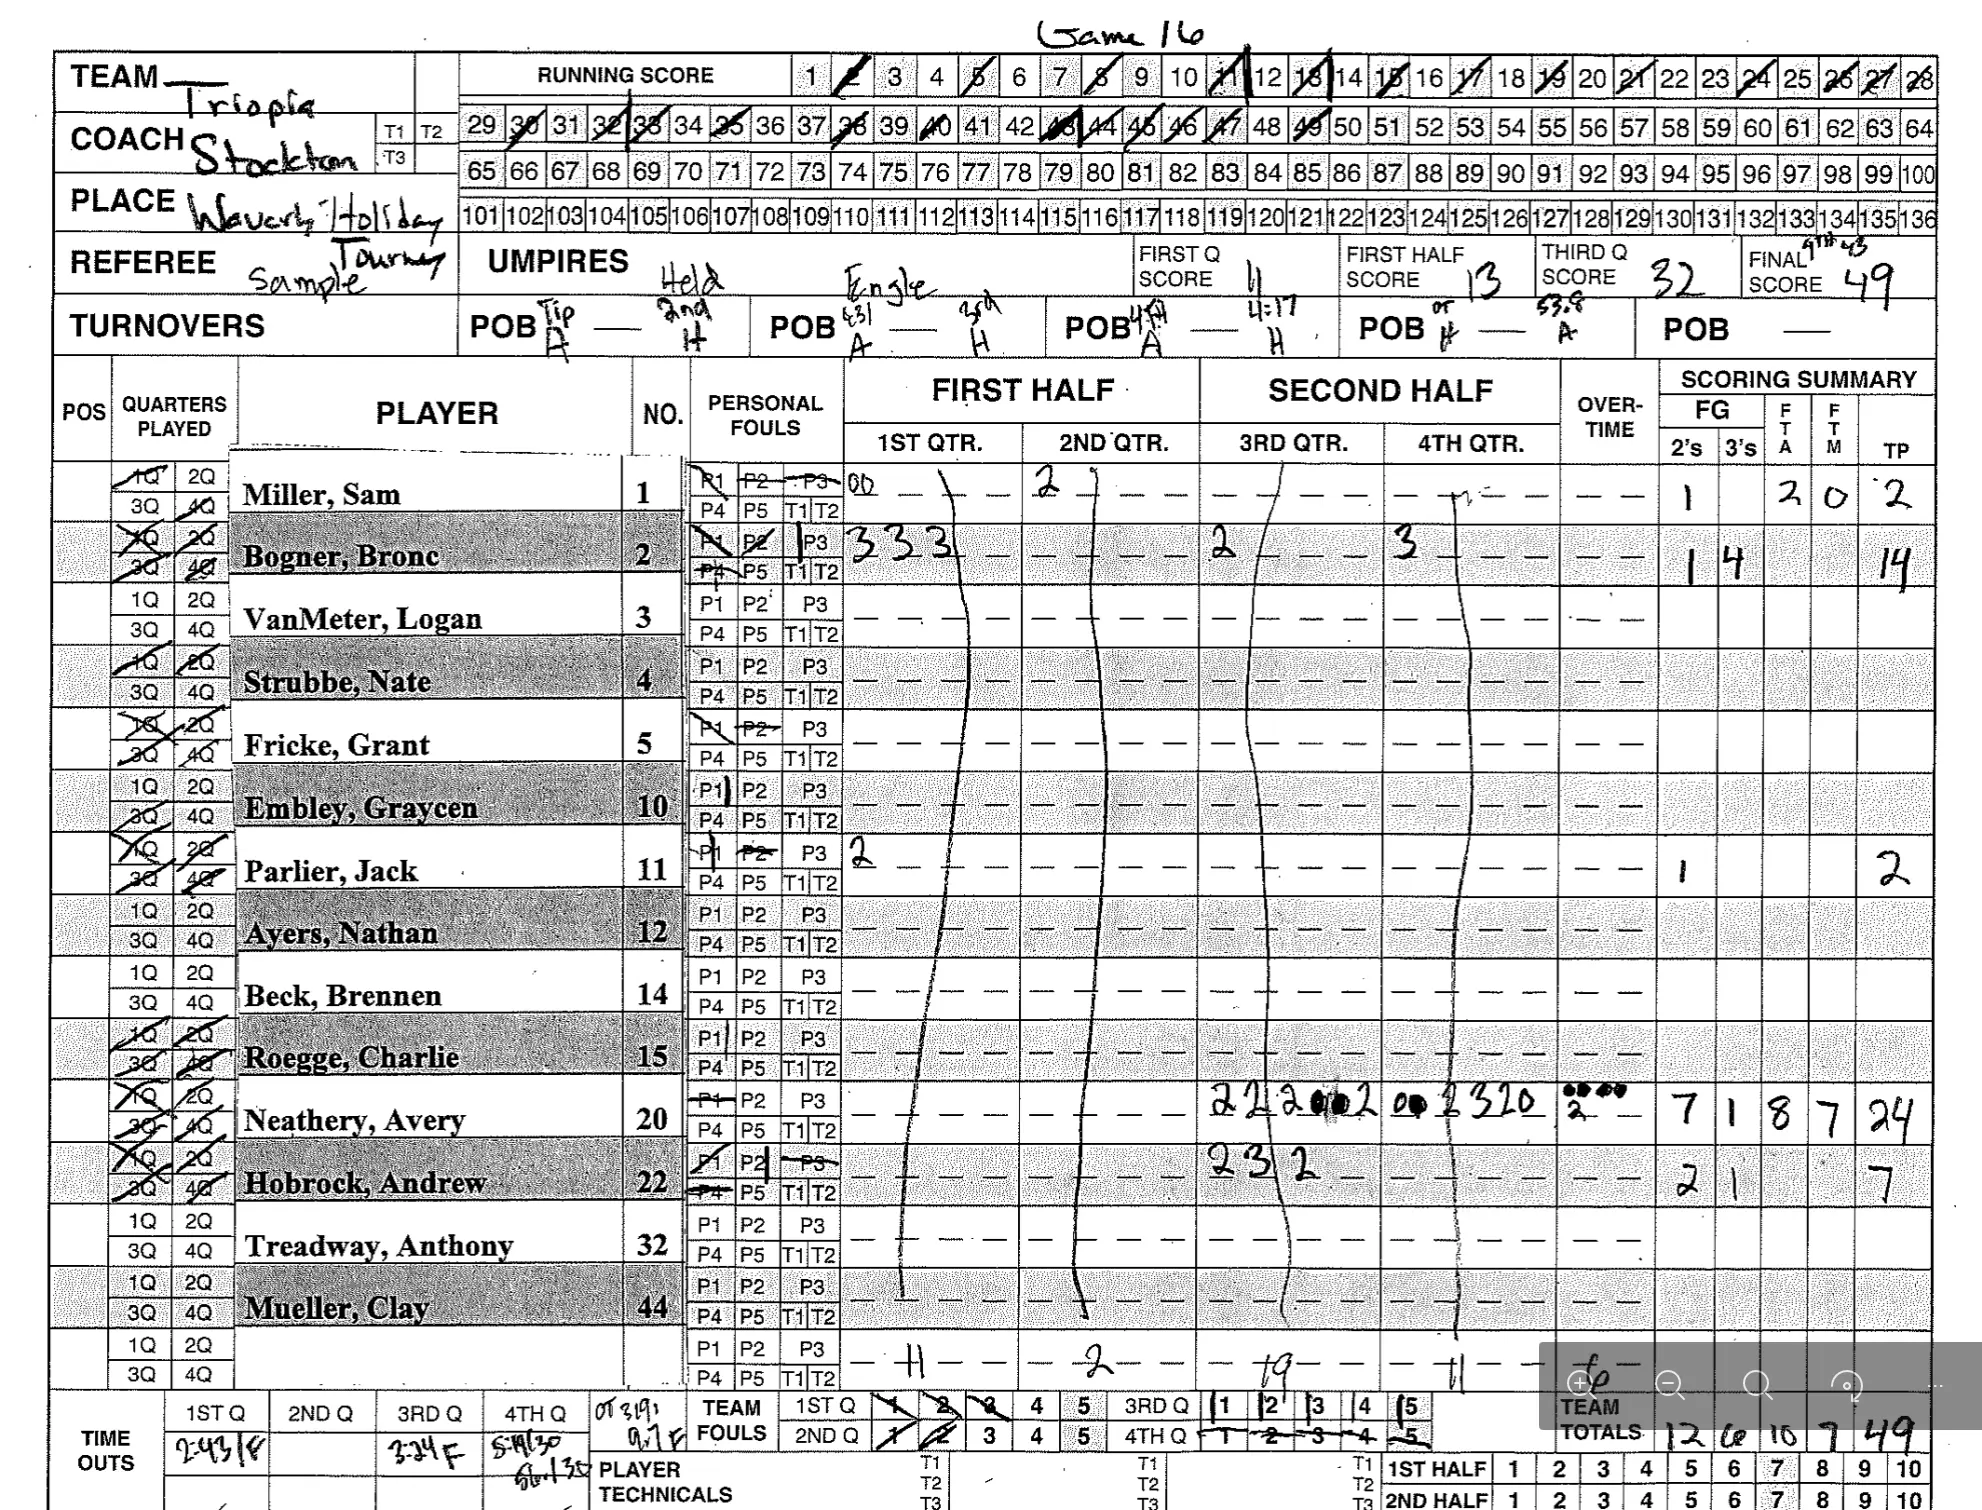 Game 16
TEAM Triopia
RUNNING SCORE 1 2 3 4 5 6 7 8 9 10 11 12 13 14 15 16 17 18 19 20 21 22 23 24 25 26 27 28
COACH Stockton T1 T2 T3
29 30 31 32 33 34 35 36 37 38 39 40 41 42 43 44 45 46 47 48 49 50 51 52 53 54 55 56 57 58 59 60 61 62 63 64
65 66 67 68 69 70 71 72 73 74 75 76 77 78 79 80 81 82 83 84 85 86 87 88 89 90 91 92 93 94 95 96 97 98 99 100
PLACE Waverly Holiday Tourney
101 102 103 104 105 106 107 108 109 110 111 112 113 114 115 116 117 118 119 120 121 122 123 124 125 126 127 128 129 130 131 132 133 134 135 136
REFEREE Sample UMPIRES Held Engle
FIRST Q SCORE 11 FIRST HALF SCORE 13 THIRD Q SCORE 32 FINAL SCORE 49 4TH 43
TURNOVERS POB Tip A — 2nd H POB 431 A — 3rd H POB 4th A — 4:17 H POB OT H — 53.8 A POB —
POS QUARTERS PLAYED PLAYER NO. PERSONAL FOULS FIRST HALF SECOND HALF OVER-TIME SCORING SUMMARY
1ST QTR. 2ND QTR. 3RD QTR. 4TH QTR. FG 2's 3's FTA FTM TP
1Q 2Q 3Q 4Q Miller, Sam 1 P1 P2 P3 P4 P5 T1 T2 00 2 1 2 0 2
1Q 2Q 3Q 4Q Bogner, Bronc 2 P1 P2 P3 P4 P5 T1 T2 3 3 3 2 3 1 4 14
1Q 2Q 3Q 4Q VanMeter, Logan 3 P1 P2 P3 P4 P5 T1 T2
1Q 2Q 3Q 4Q Strubbe, Nate 4 P1 P2 P3 P4 P5 T1 T2
1Q 2Q 3Q 4Q Fricke, Grant 5 P1 P2 P3 P4 P5 T1 T2
1Q 2Q 3Q 4Q Embley, Graycen 10 P1 P2 P3 P4 P5 T1 T2
1Q 2Q 3Q 4Q Parlier, Jack 11 P1 P2 P3 P4 P5 T1 T2 2 1 2
1Q 2Q 3Q 4Q Ayers, Nathan 12 P1 P2 P3 P4 P5 T1 T2
1Q 2Q 3Q 4Q Beck, Brennen 14 P1 P2 P3 P4 P5 T1 T2
1Q 2Q 3Q 4Q Roegge, Charlie 15 P1 P2 P3 P4 P5 T1 T2
1Q 2Q 3Q 4Q Neathery, Avery 20 P1 P2 P3 P4 P5 T1 T2 2 2 2 0 0 2 0 0 2 3 2 0 2 7 1 8 7 24
1Q 2Q 3Q 4Q Hobrock, Andrew 22 P1 P2 P3 P4 P5 T1 T2 2 3 2 2 1 7
1Q 2Q 3Q 4Q Treadway, Anthony 32 P1 P2 P3 P4 P5 T1 T2
1Q 2Q 3Q 4Q Mueller, Clay 44 P1 P2 P3 P4 P5 T1 T2
1Q 2Q 3Q 4Q P1 P2 P3 P4 P5 T1 T2 11 2 19 11 6
TIME OUTS 1ST Q 2:43/F 2ND Q 3RD Q 3:24 F 4TH Q
9.7 F
TEAM FOULS 1ST Q 1 2 3 4 5 3RD Q 1 2 3 4 5
2ND Q 1 2 3 4 5 4TH Q 1 2 3 4 5
TEAM TOTALS 12 6 10 7 49
PLAYER TECHNICALS T1 T2 T3 T1 T2 T3 T1 T2 T3
1ST HALF 1 2 3 4 5 6 7 8 9 10
2ND HALF 1 2 3 4 5 6 7 8 9 10